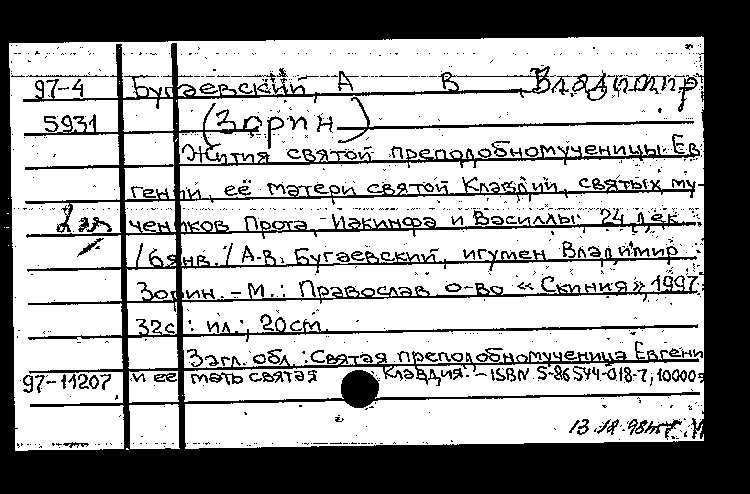 97-4 Бугаевский, А В , Владимир
5931 (Зорин)
Жития святой преподобномученицы Ев
гении, её матери святой Клавдии, святых му-
2 эк чеников Прота, Иакинфа и Василлы: 24 дек.
/6 янв./ А.В. Бугаевский, игумен Владимир
Зорин. - М.: Православ. о-во «Скиния», 1997.
32с.: ил.; 20см.
Загл. обл.: Святая преподобномученица Евгени
97-11207 и её мать святая Клавдия. - ISBN 5-86544-018-7; 10000э